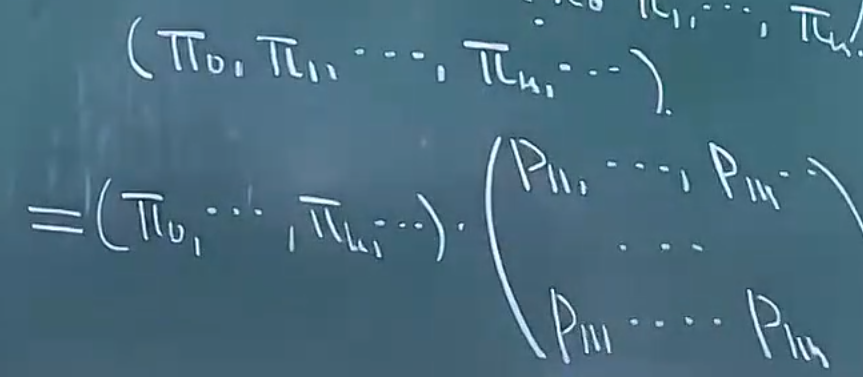 π₁, ⋯, πₙ
(π₀, π₁, ⋯, πₙ, ⋯).
= (π₀, ⋯, πₙ, ⋯) · (P₁₁, ⋯, P₁ₙ ⋯
⋯
Pₙ₁ ⋯ Pₙₙ